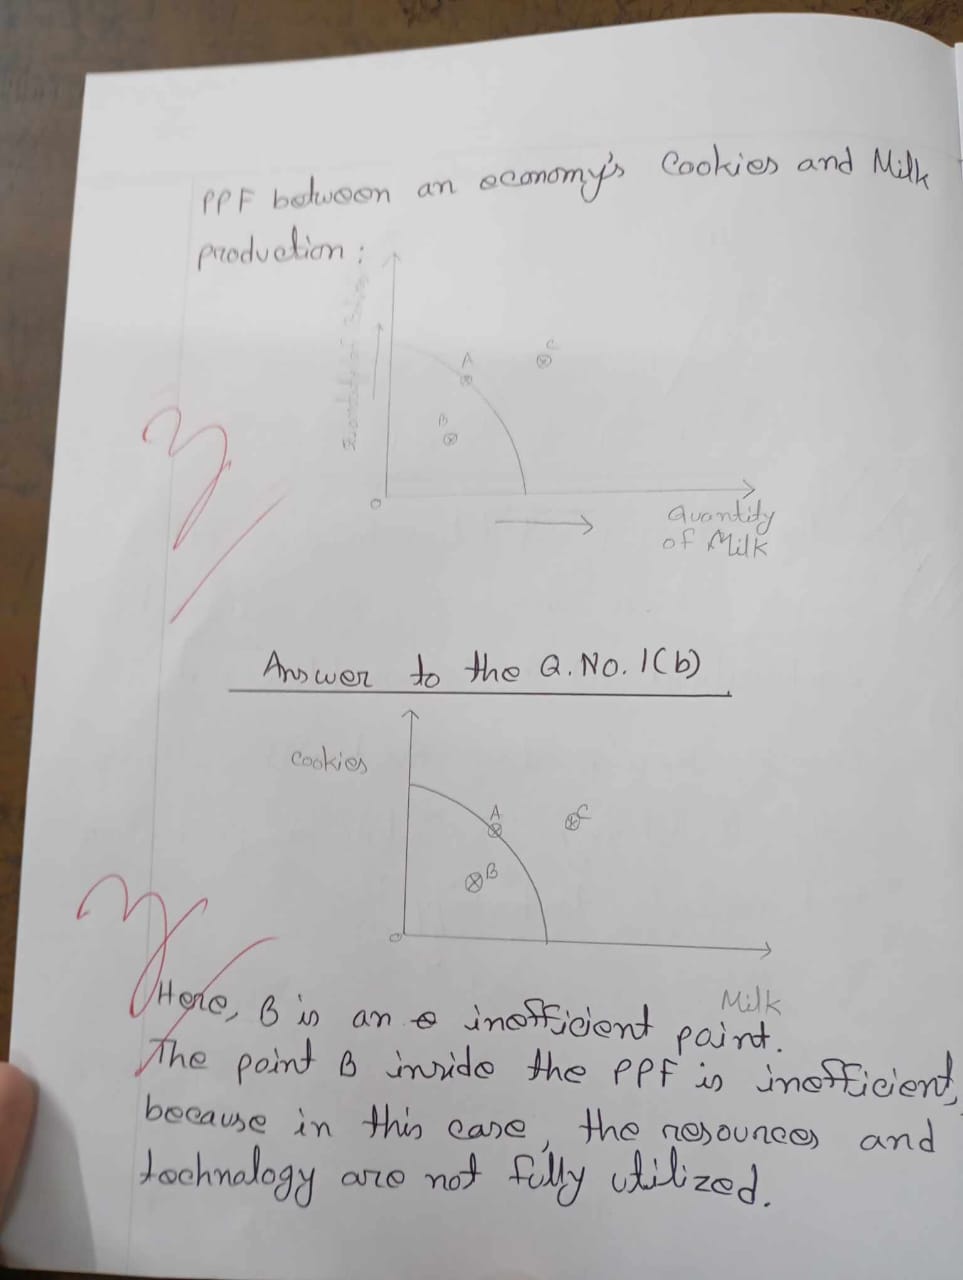 PPF between an economy's Cookies and Milk
production :
A
C
B
O
Quantity
of Milk
Answer to the Q. No. 1(b)
Cookies
A
C
B
O
Milk
Here, B is an inefficient point.
The point B inside the PPF is inefficient,
because in this case, the resources and
technology are not fully utilized.